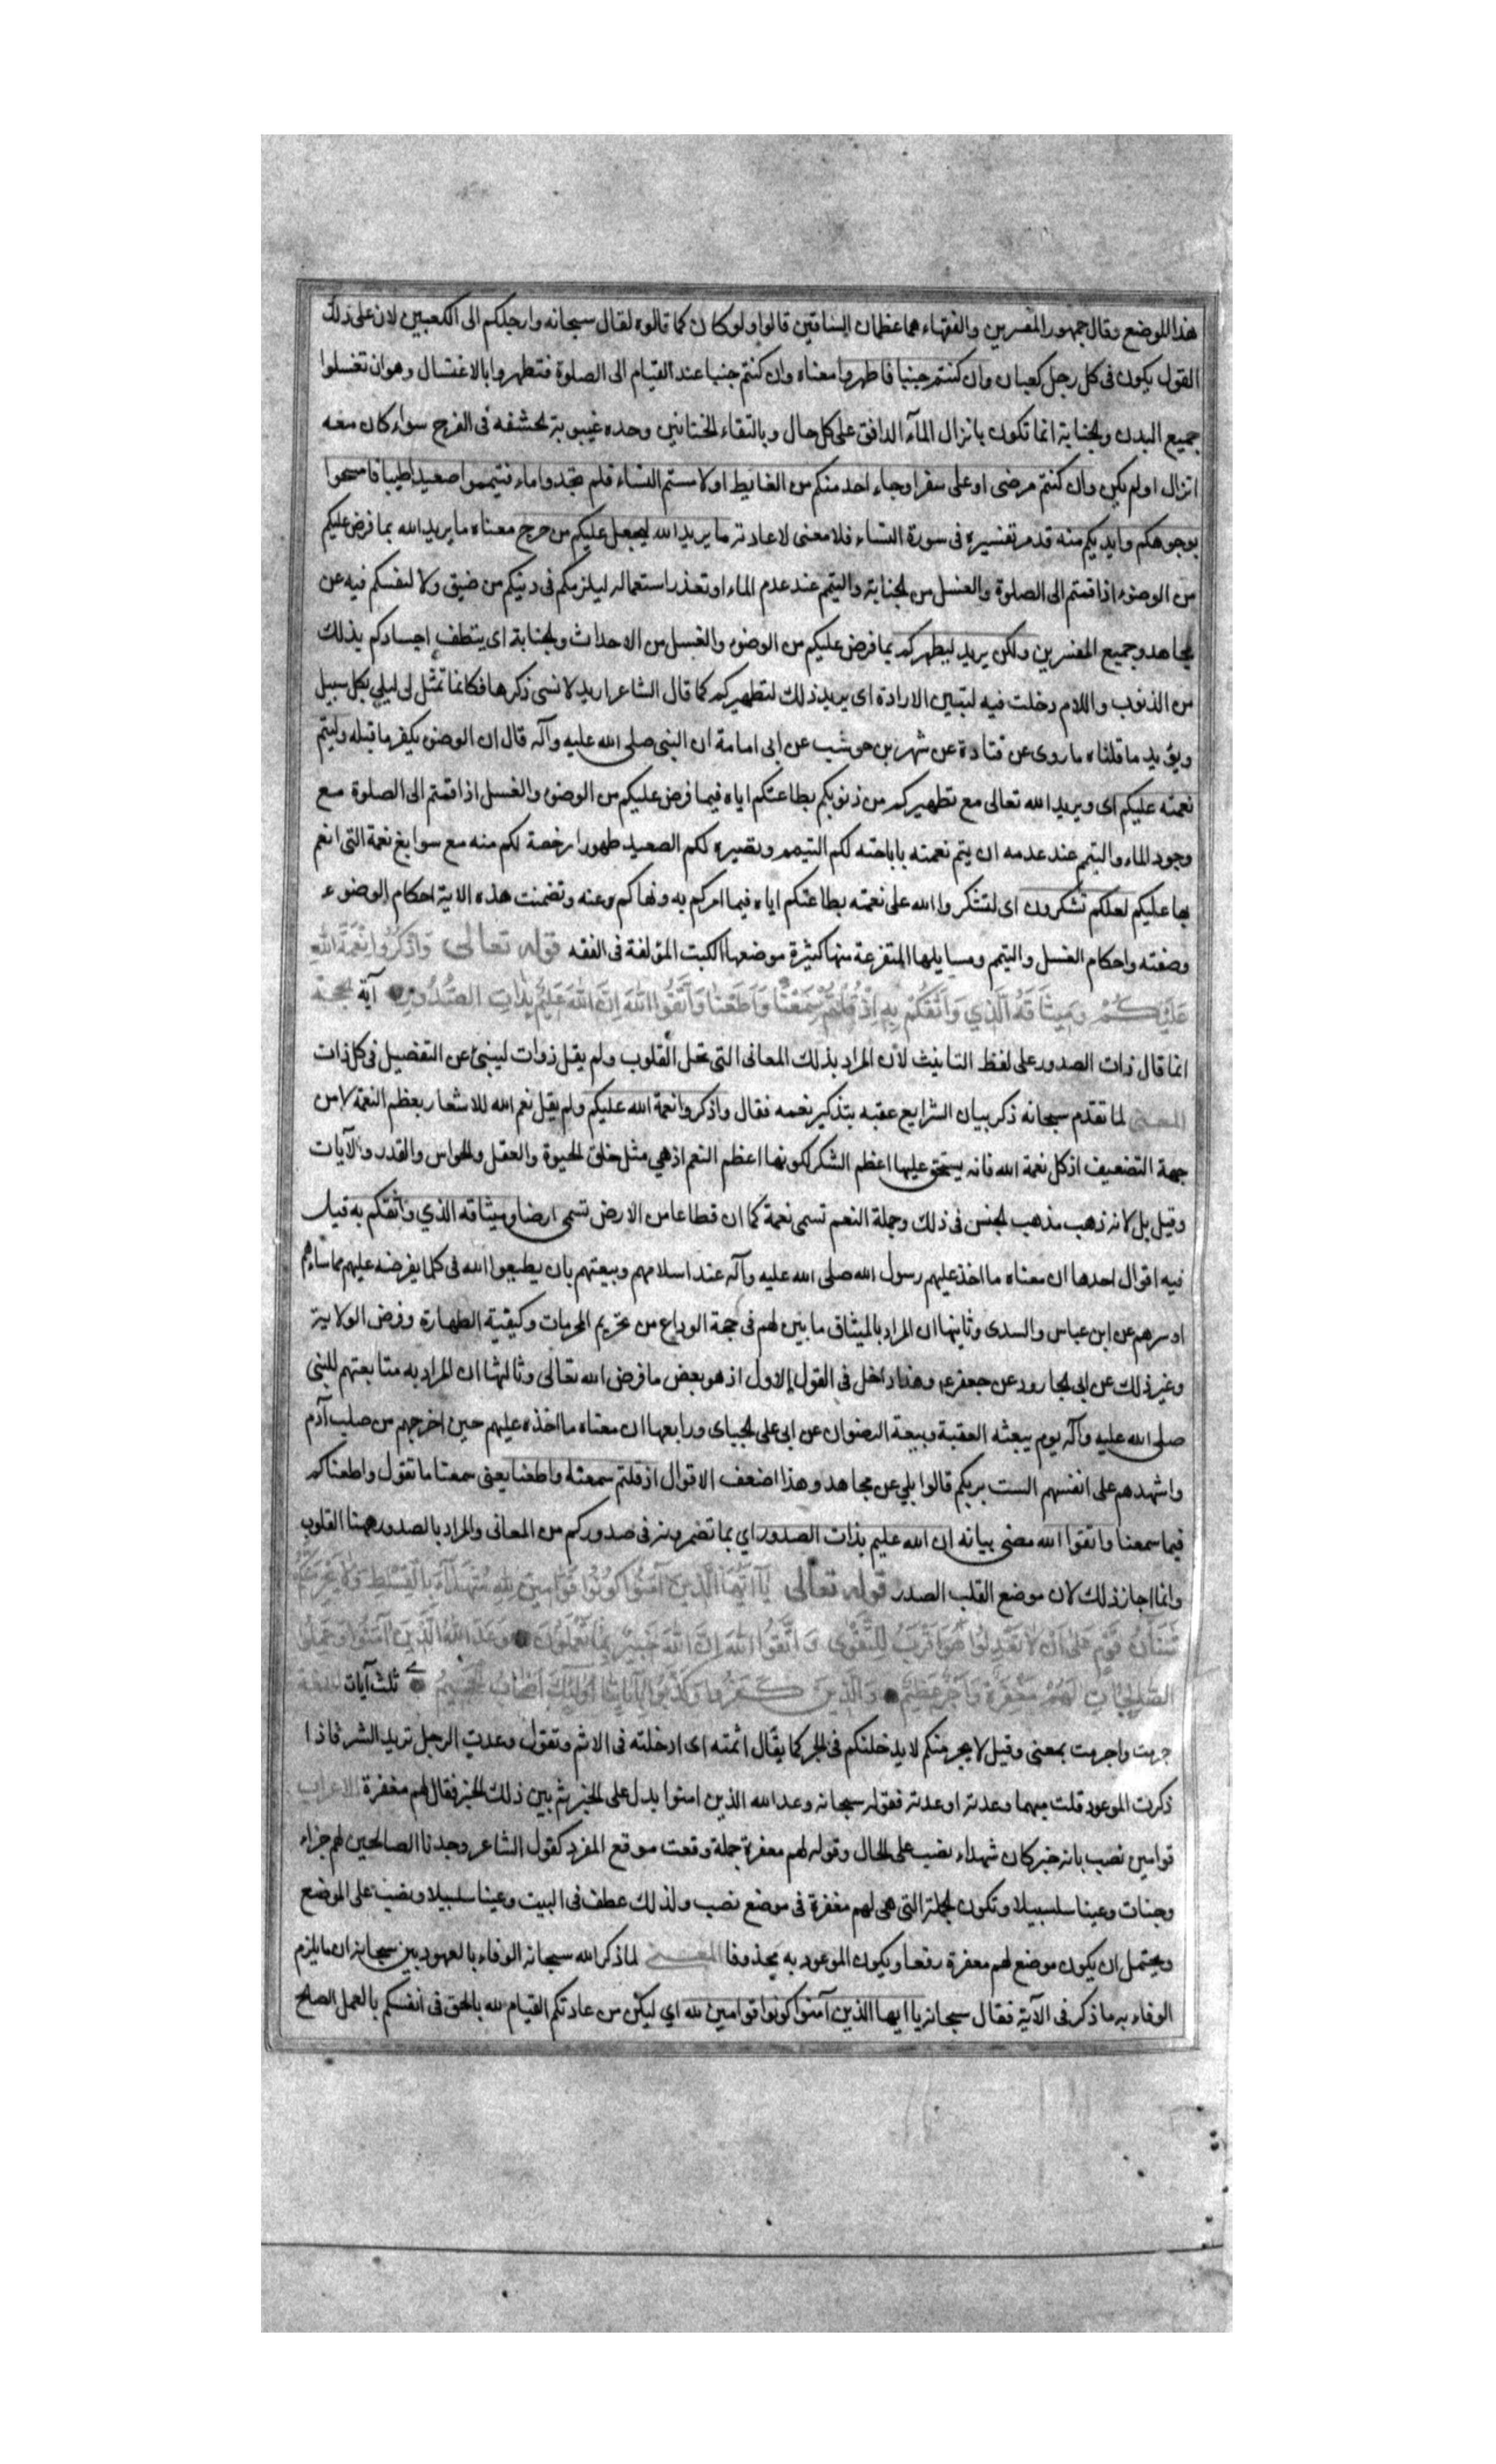 هذا الموضع وقال جمهور المفسرين والفقهاء هما عظمان الساقين قالوا ولو كان كما قالوه لقال سبحانه وارجلكم الى الكعبين لان على ذلك
القول يكون فى كل رجل كعبان وان كنتم جنبا فاطهروا معناه وان كنتم جنبا عند القيام الى الصلوة فتطهروا بالاغتسال وهو ان تغسلوا
جميع البدن والجنابة انما تكون بانزال المآء الدافق على كل حال وبالتقاء الختانين وحده غيبوبة الحشفه فى الفرج سواء كان معه
انزال او لم يكن وان كنتم مرضى او على سفر او جاء احد منكم من الغايط او لامستم النساء فلم تجدوا ماء فتيمموا صعيدا طيبا فامسحوا
بوجوهكم وايديكم منه قد مر تفسيره فى سورة النساء فلا معنى لاعادته ما يريد الله ليجعل عليكم من حرج معناه ما يريد الله بما فرض عليكم
من الوضوء اذا قمتم الى الصلوة والغسل من الجنابة والتيمم عند عدم الماء او تعذر استعماله ليلزمكم فى دينكم من ضيق ولا لنفسكم فيه عن
مجاهد وجميع المفسرين ولكن يريد ليطهركم بما فرض عليكم من الوضوء والغسل من الاحداث والجنابة اى ينظف اجسادكم بذلك
من الذنوب واللام دخلت فيه لتبيين الارادة اى يريد ذلك لتطهيركم كما قال الشاعر اريد لانسى ذكرها فكانما تمثل لى ليلى بكل سبيل
ويؤيد ما قلناه ما روى عن قتادة عن شهر بن حوشب عن ابى امامة ان النبى صلى الله عليه وآله قال ان الوضوء يكفر ما قبله وليتم
نعمته عليكم اى ويريد الله تعالى مع تطهيركم من ذنوبكم بطاعتكم اياه فيما فرض عليكم من الوضوء والغسل اذا قمتم الى الصلوة مع
وجود الماء والتيمم عند عدمه ان يتم نعمته باباحته لكم التيمم وتصيره لكم الصعيد طهورا رخصة لكم منه مع سوابغ نعمة التى انعم
بها عليكم لعلكم تشكرون اى لتشكروا الله على نعمته بطاعتكم اياه فيما امركم به ونهاكم عنه وتضمنت هذه الاية احكام الوضوء
وصفته واحكام الغسل والتيمم ومسايلها المتفرعة منها كثيرة موضعها الكتب المؤلفة فى الفقه قوله تعالى وَاذْكُرُوا نِعْمَةَ اللهِ
عَلَيْكُمْ وَمِيثَاقَهُ الَّذِي وَاثَقَكُمْ بِهِ اِذْ قُلْتُمْ سَمِعْنَا وَاَطَعْنَا وَاتَّقُوا اللهَ اِنَّ اللهَ عَلِيمٌ بِذَاتِ الصُّدُورِ آية الحجة
انما قال ذات الصدور على لفظ التانيث لأن المراد بذلك المعانى التى تحل القلوب ولم يقل ذوات لينبئ عن التفصيل فى كل ذات
المعنى لما تقدم سبحانه ذكر بيان الشرايع عقبه بتذكير نعمه فقال واذكروا نعمة الله عليكم ولم يقل نعم الله للاشعار بعظم النعمة لا من
جهة التضعيف اذ كل نعمة الله فانه يستحق عليها اعظم الشكر لكونها اعظم النعم اذ هي مثل خلق الحيوة والعقل والحواس والقدر والآيات
وقيل بل لانه ذهب مذهب الجنس فى ذلك وجملة النعم تسمى نعمة كما ان قطاعا من الارض تسمى ارضا وميثاقه الذي واثقكم به قيل
فيه اقوال احدها ان معناه ما اخذ عليهم رسول الله صلى الله عليه وآله عند اسلامهم وبيعتهم بان يطيعوا الله فى كلما يفرضه عليهم مما ساءهم
او سرهم عن ابن عباس والسدى وثانيها ان المراد بالميثاق ما بين لهم فى حجة الوداع من تحريم المحرمات وكيفية الطهارة وفرض الولاية
وغير ذلك عن ابى الجارود عن جعفر ع وهذا داخل فى القول الاول اذ هو بعض ما فرض الله تعالى وثالثها ان المراد به متابعتهم للنبى
صلى الله عليه وآله يوم بيعته العقبة وبيعة الرضوان عن ابى على الجبائى ورابعها ان معناه ما اخذه عليهم حين اخرجهم من صلب آدم
واشهدهم على انفسهم الست بربكم قالوا بلي عن مجاهد وهذا اضعف الاقوال اذ قلتم سمعنا واطعنا يعنى سمعنا ما تقول واطعناك
فيما سمعنا واتقوا الله مضى بيانه ان الله عليم بذات الصدور اي بما تضمرونه فى صدوركم من المعانى والمراد بالصدور ههنا القلوب
وانما اجاز ذلك لان موضع القلب الصدر قوله تعالى يَا اَيُّهَا الَّذِينَ آمَنُوا كُونُوا قَوَّامِينَ لِلهِ شُهَدَآءَ بِالْقِسْطِ وَلَا يَجْرِمَنَّكُمْ
شَنَآنُ قَوْمٍ عَلَى اَنْ لَا تَعْدِلُوا هُوَ اَقْرَبُ لِلتَّقْوَى وَاتَّقُوا اللهَ اِنَّ اللهَ خَبِيرٌ بِمَا تَعْمَلُونَ وَعَدَ اللهُ الَّذِينَ آمَنُوا وَعَمِلُوا
الصَّالِحَاتِ لَهُمْ مَغْفِرَةٌ وَاَجْرٌ عَظِيمٌ وَالَّذِينَ كَفَرُوا وَكَذَّبُوا بِآيَاتِنَا اُولَئِكَ اَصْحَابُ الْجَحِيمِ ثلث آيات اللغة
جرمت واجرمت بمعنى وقيل لا يجرمنكم لا يدخلنكم فى الجرم كما يقال اثمته اى ادخلته فى الاثم وتقول وعدت الرجل تريد الشر فاذا
ذكرت الموعود قلت منهما وعدته اوعدته فقوله سبحانه وعد الله الذين امنوا يدل على الخير ثم بين ذلك الخير فقال لهم مغفرة الاعراب
قوامين نصب بانه خبر كان شهداء نصب على الحال وقوله لهم مغفرة جملة وقعت موقع المفرد كقول الشاعر وجدنا الصالحين لهم جزاء
وجنات وعينا سلسبيلا وتكون الجملة التى هى لهم مغفرة فى موضع نصب ولذلك عطف فى البيت وعينا سلسبيلا ونصب على الموضع
ويحتمل ان يكون موضع لهم مغفرة رفعا ويكون الموعود به محذوفا المعنى لما ذكر الله سبحانه الوفاء بالعهود بين سبحانه ان ما يلزم
الوفاء به ما ذكر فى الآية فقال سبحانه يا ايها الذين آمنوا كونوا قوامين لله اي ليكن من عادتكم القيام لله بالحق فى انفسكم بالعمل الصلح